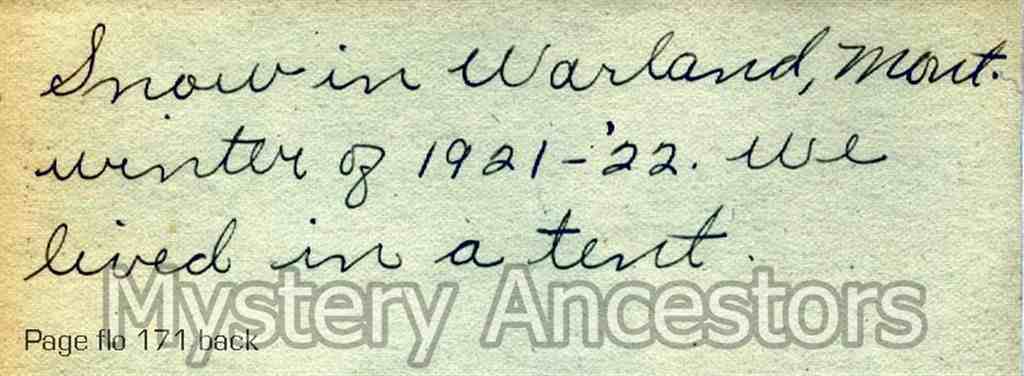 Snow in Warland, Mont.
winter of 1921-'22. We
lived in a tent.
Mystery Ancestors
Page flo 171 back